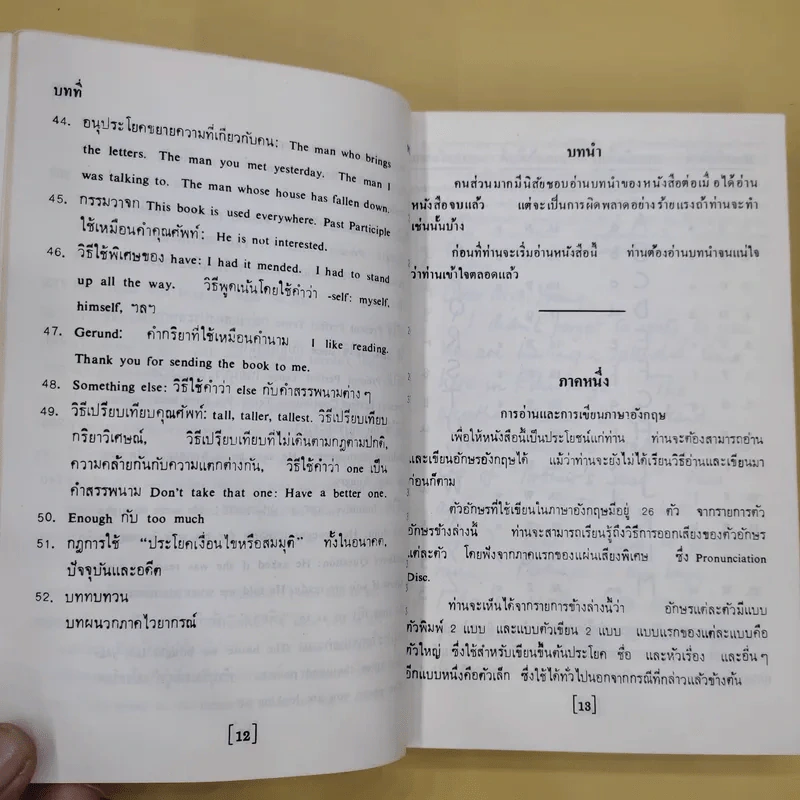 บทที่
44. อนุประโยคขยายความที่เกี่ยวกับคน: The man who brings
the letters. The man you met yesterday. The man I
was talking to. The man whose house has fallen down.
45. กรรมวาจก This book is used everywhere. Past Participle
ใช้เหมือนคำคุณศัพท์: He is not interested.
46. วิธีใช้พิเศษของ have: I had it mended. I had to stand
up all the way. วิธีพูดเน้นโดยใช้คำว่า -self: myself,
himself, ฯลฯ
47. Gerund: คำกริยาที่ใช้เหมือนคำนาม I like reading.
Thank you for sending the book to me.
48. Something else: วิธีใช้คำว่า else กับคำสรรพนามต่างๆ
49. วิธีเปรียบเทียบคุณศัพท์: tall, taller, tallest. วิธีเปรียบเทียบ
กริยาวิเศษณ์, วิธีเปรียบเทียบที่ไม่เดินตามกฎตามปกติ,
ความคล้ายกันกับความแตกต่างกัน, วิธีใช้คำว่า one เป็น
คำสรรพนาม Don't take that one: Have a better one.
50. Enough กับ too much
51. กฎการใช้ “ประโยคเงื่อนไขหรือสมมุติ” ทั้งในอนาคต,
ปัจจุบันและอดีต
52. บททบทวน
บทผนวกภาคไวยากรณ์
[12]
บทนำ
คนส่วนมากมีนิสัยชอบอ่านบทนำของหนังสือต่อเมื่อได้อ่าน
หนังสือจบแล้ว แต่จะเป็นการผิดพลาดอย่างร้ายแรงถ้าท่านจะทำ
เช่นนั้นบ้าง
ก่อนที่ท่านจะเริ่มอ่านหนังสือนี้ ท่านต้องอ่านบทนำจนแน่ใจ
ว่าท่านเข้าใจตลอดแล้ว
ภาคหนึ่ง
การอ่านและการเขียนภาษาอังกฤษ
เพื่อให้หนังสือนี้เป็นประโยชน์แก่ท่าน ท่านจะต้องสามารถอ่าน
และเขียนอักษรอังกฤษได้ แม้ว่าท่านจะยังไม่ได้เรียนวิธีอ่านและเขียนมา
ก่อนก็ตาม
ตัวอักษรที่ใช้เขียนในภาษาอังกฤษมีอยู่ 26 ตัว จากรายการตัว
อักษรข้างล่างนี้ ท่านจะสามารถเรียนรู้ถึงวิธีการออกเสียงของตัวอักษร
แต่ละตัว โดยฟังจากภาคแรกของแผ่นเสียงพิเศษ ซึ่ง Pronunciation
Disc.
ท่านจะเห็นได้จากรายการข้างล่างนี้ว่า อักษรแต่ละตัวมีแบบ
ตัวพิมพ์ 2 แบบ และแบบตัวเขียน 2 แบบ แบบแรกของแต่ละแบบคือ
ตัวใหญ่ ซึ่งใช้สำหรับเขียนขึ้นต้นประโยค ชื่อ และหัวเรื่อง และอื่นๆ
อีกแบบหนึ่งคือตัวเล็ก ซึ่งใช้ได้ทั่วไปนอกจากกรณีที่กล่าวแล้วข้างต้น
[13]